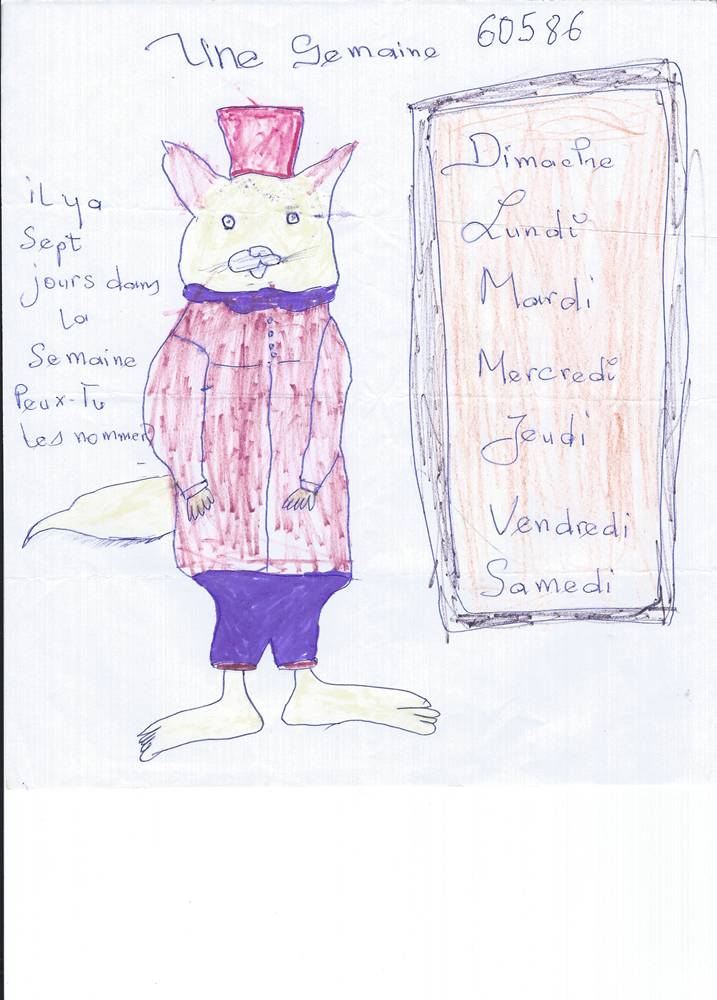 Une Semaine
60586
il ya
Sept
jours dans
la
Semaine
Peux-Tu
les nommer
Dimache
Lundi
Mardi
Mercredi
Jeudi
Vendredi
Samedi